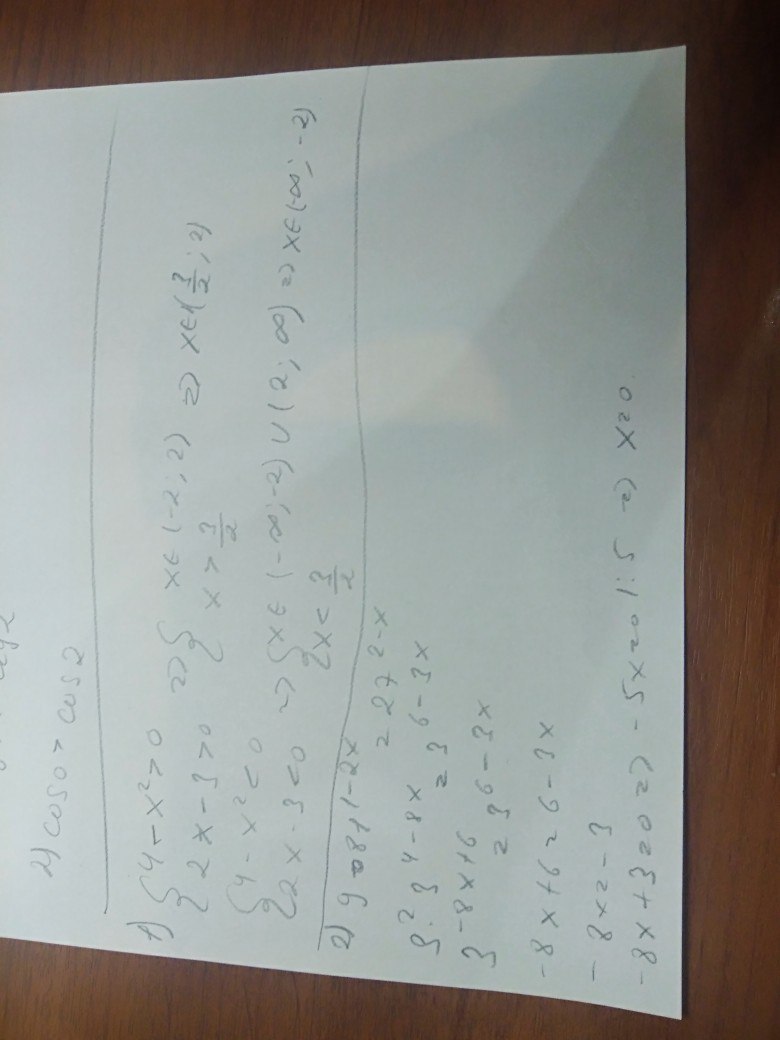 2) cos0 > cos2
1) { 4 - x² > 0 => { x ∈ (-2; 2) => x ∈ (3/2; 2)
{ 2x - 3 > 0 { x > 3/2
{ 4 - x² < 0 => { x ∈ (-∞; -2) ∪ (2; ∞) => x ∈ (-∞; -2)
{ 2x - 3 < 0 { x < 3/2
2) 9 · 81^(1-2x) = 27^(2-x)
3² · 3^(4-8x) = 3^(6-3x)
3^(-8x+6) = 3^(6-3x)
-8x + 6 = 6 - 3x
-8x = -3
-8x + 3 = 0 => -5x = 0 |:5 => x = 0.